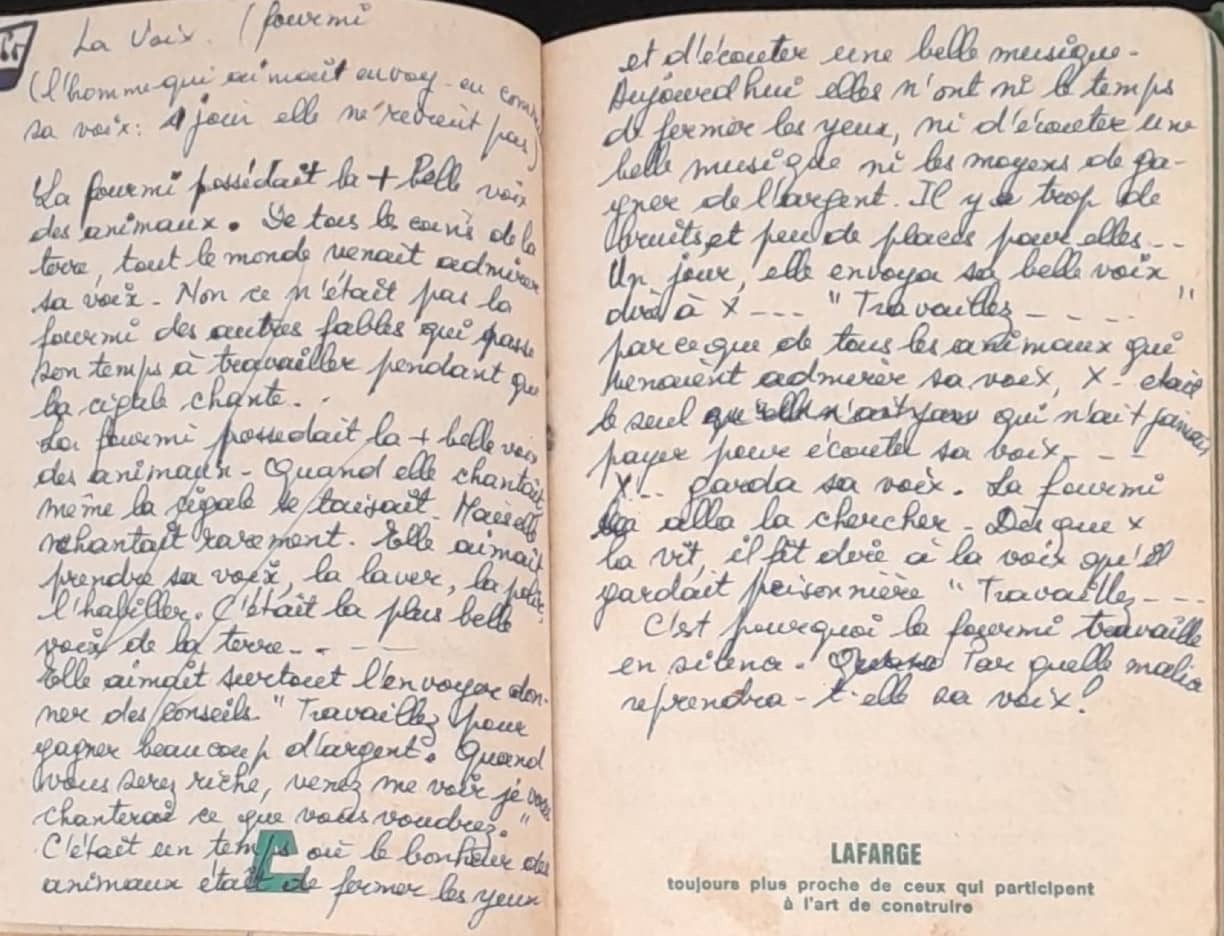 La Voix. (fourmi
(l'homme qui aimait envoy. en comm
sa voix : 1 jour elle ne revient pas)
La fourmi possédait la + belle voix
des animaux. De tous les coins de la
terre, tout le monde venait admirer
sa voix - Non ce n'était pas la
fourmi des autres fables qui passe
son temps à travailler pendant que
la cigale chante.
La fourmi possedait la + belle voix
des animaux - Quand elle chantait
même la cigale se taisait. Mais elle
chantait rarement. Elle aimait
prendre sa voix, la laver, la polir,
l'habiller. C'était la plus belle
voix de la terre - - - -
Elle aimait surtout l'envoyer don-
ner des conseils. "Travaillez pour
gagner beaucoup d'argent. Quand
vous serez riche, venez me voir je vous
chanterai ce que vous voudrez."
C'était un temps où le bonheur des
animaux était de fermer les yeux
et d'écouter une belle musique -
Aujourd'hui elles n'ont ni le temps
de fermer les yeux, ni d'écouter une
belle musique ni les moyens de ga-
gner de l'argent. Il y a trop de
bruits et peu de places pour elles - -
Un jour, elle envoya sa belle voix
dire à X - - - "Travaillez - - - - "
parce que de tous les animaux qui
venaient admirer sa voix, X - etait
le seul qui n'ait jamais
payer pour écouter sa voix - - -
X - - garda sa voix. La fourmi
alla la chercher - Dès que X
la vit, il fit dire à la voix qu'il
gardait prisonnière "Travaillez - - -
C'est pourquoi la fourmi travaille
en silence. Par quelle malice
reprendra-t-elle sa voix !
LAFARGE
toujours plus proche de ceux qui participent
à l'art de construire